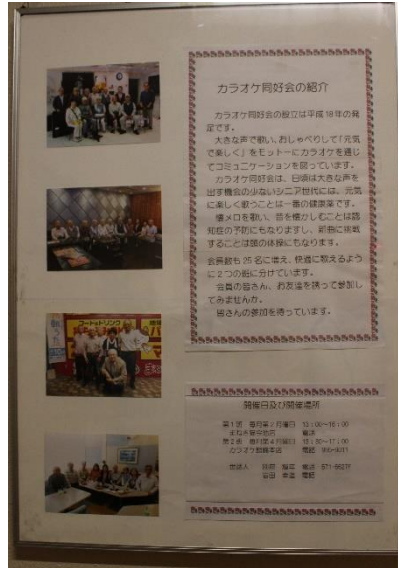 カラオケ同好会の紹介
カラオケ同好会の設立は平成18年の発
足です。
大きな声で歌い、おしゃべりして「元気
で楽しく」をモットーにカラオケを通じ
てコミュニケーションを図っています。
カラオケ同好会は、日頃は大きな声を
出す機会の少ないシニア世代には、元気
に楽しく歌うことは一番の健康薬です。
懐メロを歌い、昔を懐かしむことは認
知症の予防にもなりますし、新曲に挑戦
することは頭の体操にもなります。
会員数も25名に増え、快適に歌えるよう
に2つの班に分けています。
会員の皆さん、お友達を誘って参加し
てみませんか。
皆さんの参加を待っています。
フード&ドリンク
開催日及び開催場所
第1班 毎月第2月曜日 13:00~16:00
第2班 毎月第4月曜日
カラオケ 電話
世話人 電話
電話